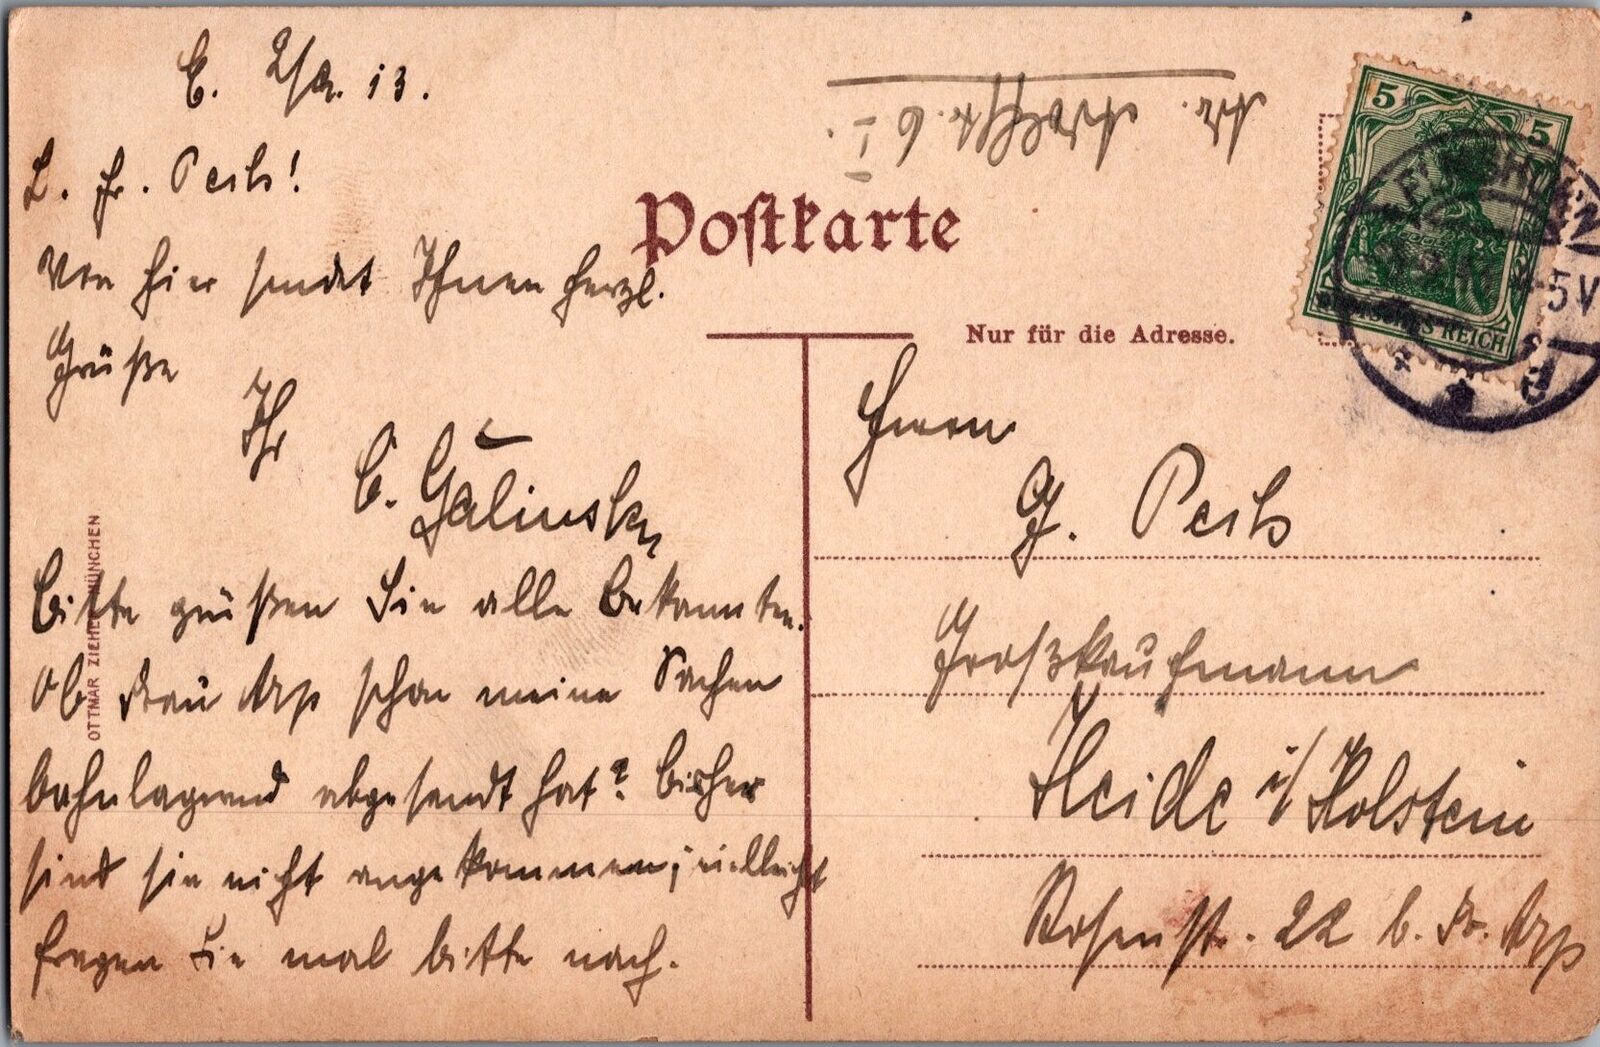 E. 2/2. 13.
L. Fr. Peils!
Von hier sendet Ihnen herzl.
Grüße
Ihr
E. Galinsky
Bitte grüßen Sie alle Bekannten.
Ob Frau Arp schon meine Sachen
bahnlagernd abgesandt hat? Bisher
sind sie nicht angekommen; vielleicht
fragen Sie mal bitte nach.
OTTMAR ZIEHER MÜNCHEN
6 I.
Postkarte
Nur für die Adresse.
5 5
DEUTSCHES REICH
5 V
Herrn
G. Peils
Großkaufmann
Heide i/Holstein
Rosenstr. 22 b. Fr. Arp